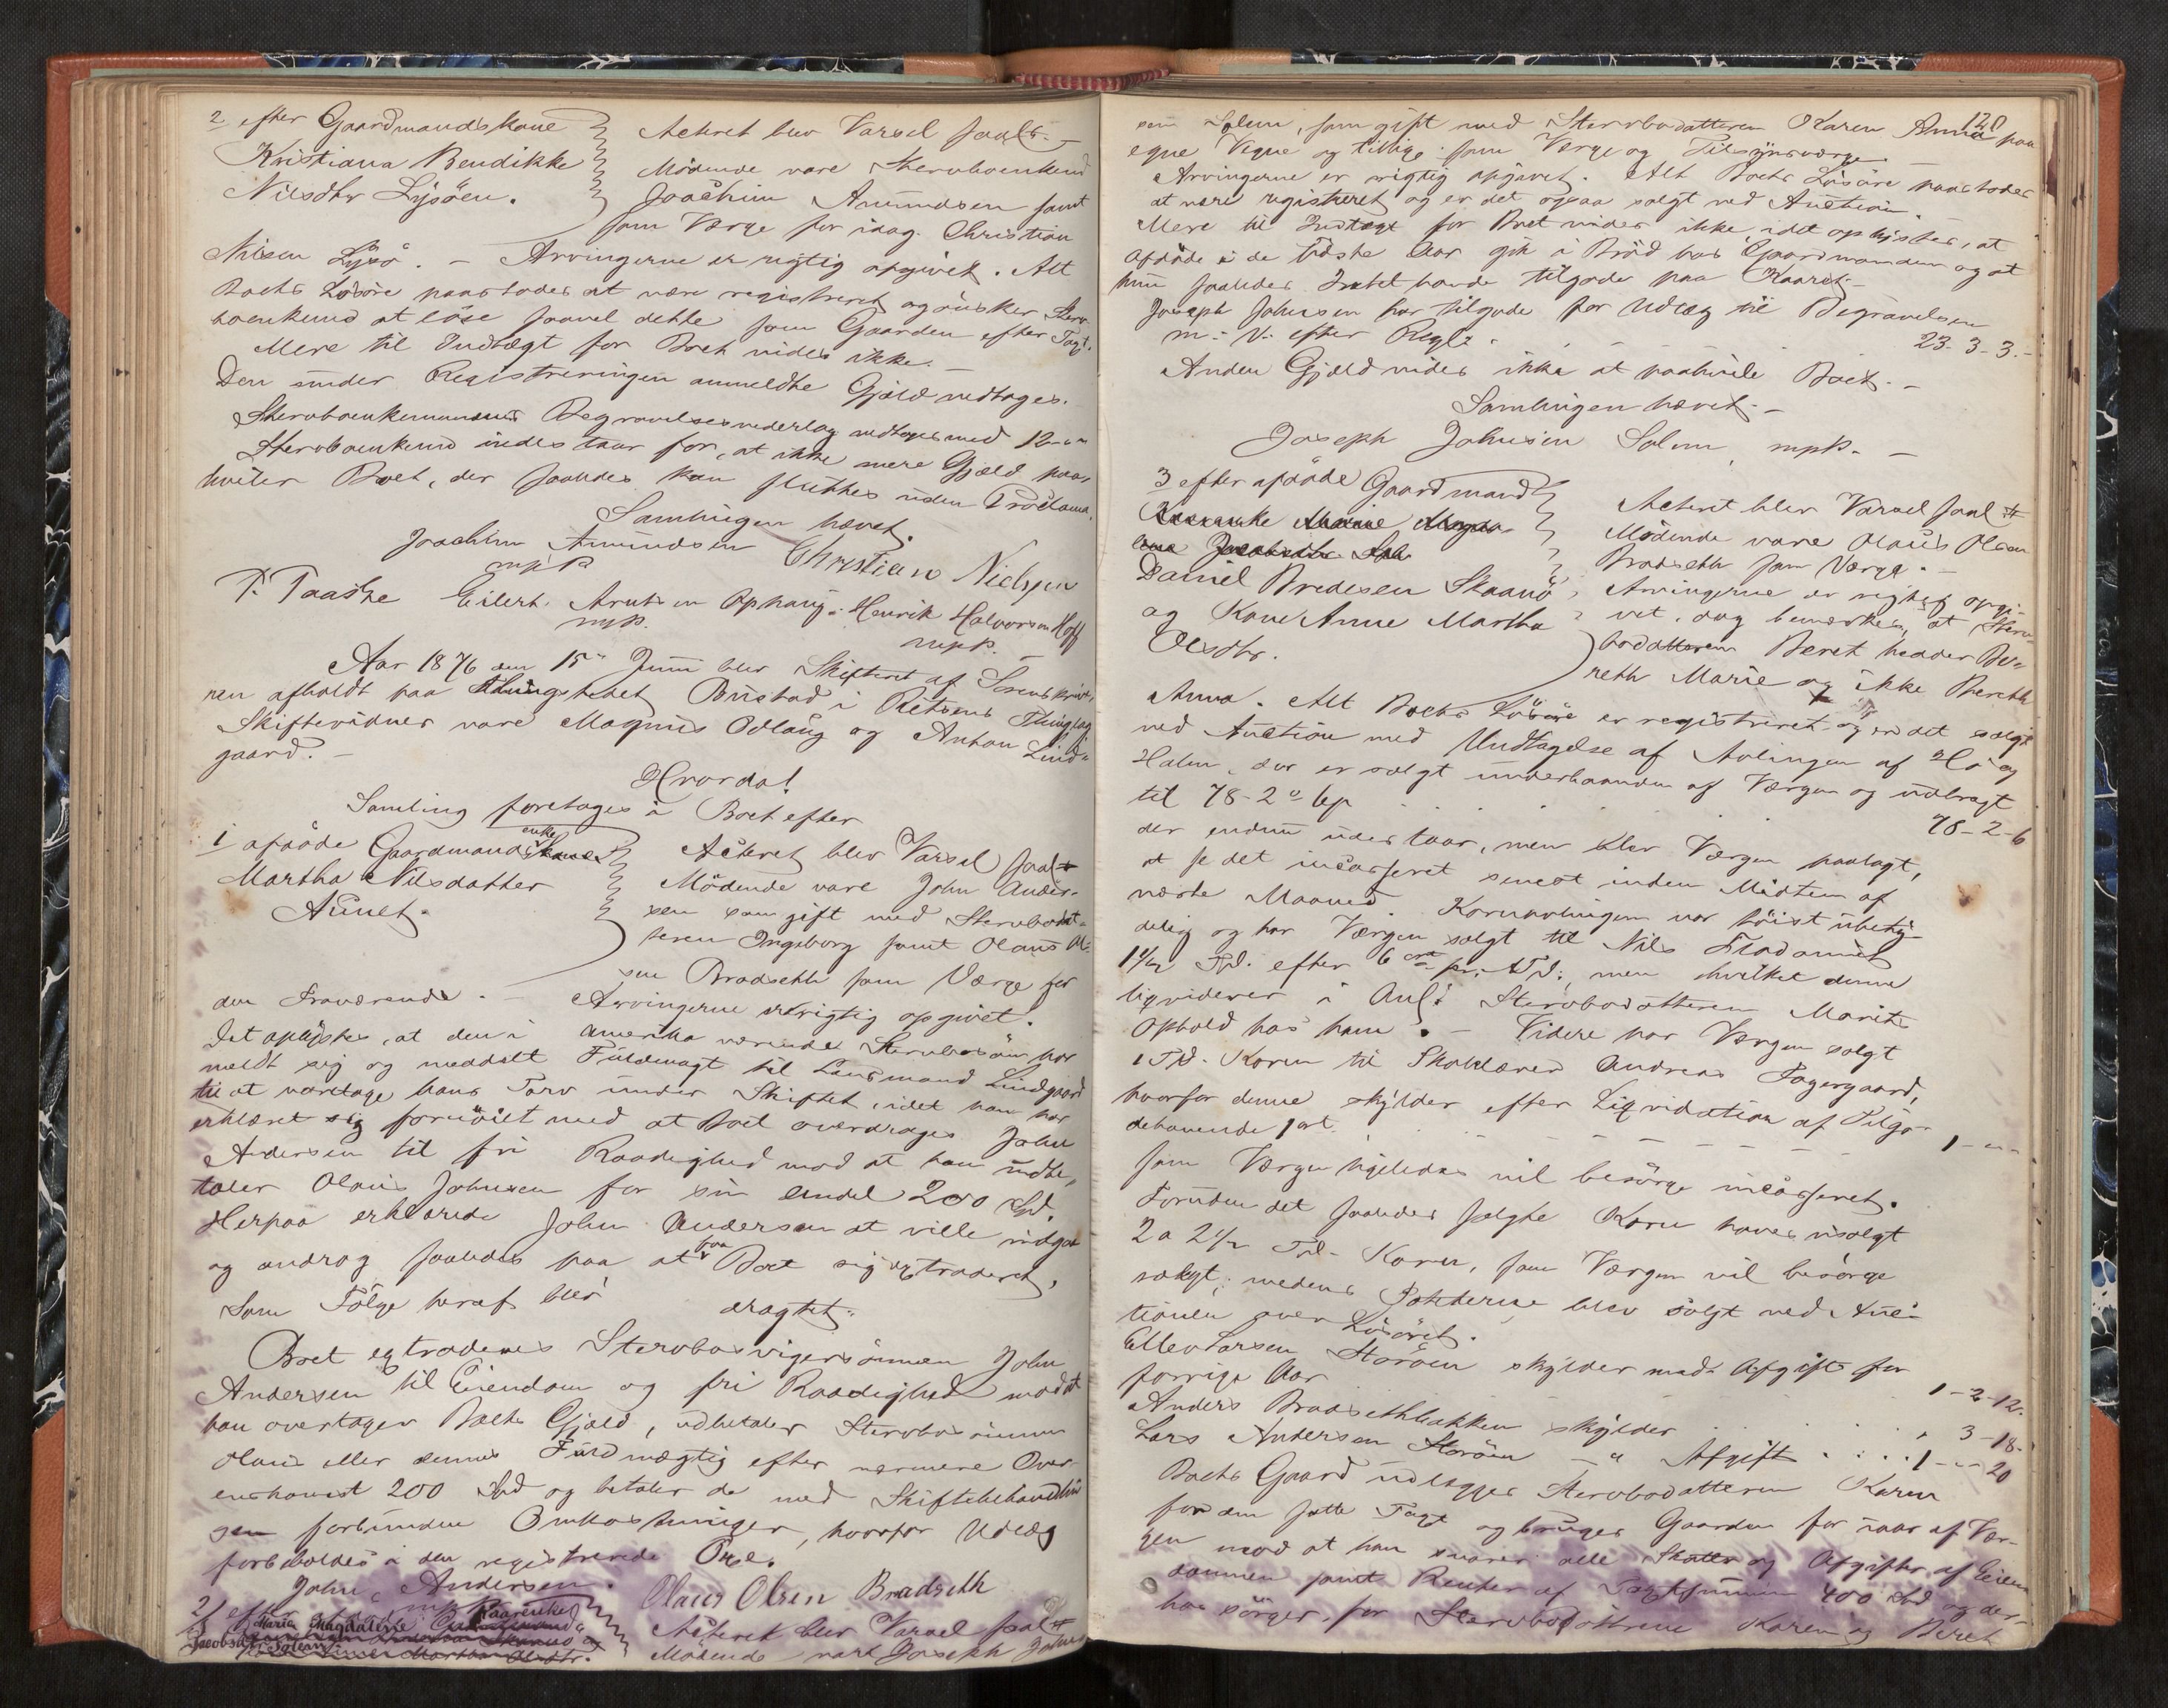 2 efter Gaardmandskone
Kristiana Bendikke
Nilsdtr Lysøen.
Acteret blev Varsel saal.
Mødende vare Stervboenkemd
Joachim Amundsen samt
som Værge for idag Christian
Nilsen Lysø. – Arvingerne er rigtig opgivet. Alt
Boets Løsøre paastodes at være registreret og ønsker Sterv-
boenkemd at løse saavel dette som Gaarden efter Taxt.
Mere til Indtægt for Boet vides ikke. –
Den under Registreringen anmeldte Gjæld vedtages.
Stervboenkemandens Begravelsesvederlag vedtages med 12 - " "
Stervboenkemd indestaar for, at ikke mere Gjæld paa-
hviler Boet, der saaledes kan sluttes uden Proclama.
Samlingen hævet.
Joachim Amundsen Christian Nielsen
mpP
P. Taaske Eilert Arntsen Ophaug. Henrik Halvorsen Hoff
mpP. mpP.
Aar 1876 den 15de Juni blev Skifteret af Sorenskrive-
ren afholdt paa Thingstedet Bustad i Rettens Thinglag
Skiftevidner vare Magnus Ødlaug og Anton Lind-
gaard. –
Hvorda!
Samling foretages i Boet efter
1 afdøde Gaardmandsenke
Martha Nilsdatter
Aunet.
Acteret blev Varsel saal
Mødende vare John Ander-
sen som gift med Stervbodat-
teren Ingeborg samt Olaus Ol-
sen Bradseth som Værge for
den Fraværende. – Arvingerne er rigtig opgivet.
Det oplystes, at den i Amerika værende Stervbosøn har
meldt sig og meddelt Fuldmagt til Lensmand Lindgaard
til at varetage hans Tarv under Skiftet, idet han har
erklæret sig fornøiet med at Boet overdrages John
Andersen til fri Raadighed mod at han udbe-
taler Olaus Johnsen for sin Andel 200 Spd.
Herpaa erklærede John Andersen at ville indgaa
og androg saaledes paa at faa Boet sig extraderet,
Som Følge heraf blev
eragtet:
Boet extraderes Stervbosvigersønnen John
Andersen til Eiendom og fri Raadighed mod at
han overtager Boets Gjæld, udbetaler Stervbosønnen
Olaus eller dennes Fuldmægtig efter nærmere Over-
enskomst 200 Spd og betaler de med Skiftebehandlin-
gen forbundne Omkostninger, hvorfor Udlæg
forbeholdes i den registrerede Oxe.
John Andersen. Olaus Olsen Bradseth
mpP
2/ eft
Maria Magdalene
Jacobsdtr Solem.
Acteret blev Varsel saal
Mødende vare Joseph John-
120
sen Solem, som gift med Stervbodatteren Karen Anna paa
egne Vegne og tillige som Værge og Tilsynsværge
Arvingerne er rigtig opgivet. Alt Boets Løsøre paastodes
at være registreret og er det ogsaa solgt ved Auction.
Mere til Indtægt for Boet vides ikke, idet oplystes, at
afdøde i de sidste Aar gik i Brød hos Gaardmanden og at
hun saaledes Intet havde tilgode paa Kaaret. –
Joseph Johnsen har tilgode for Udlæg til Begravelsen
m. V. efter Regl. 23 - 3 - 3. –
Anden Gjæld vides ikke at paahvile Boet. –
Samlingen hævet. –
Joseph Johnsen Solem mpP. –
3 efter afdøde Gaardmand
Daniel Bredesen Skaanø
og Kone Anne Martha
Olsdtr.
Acteret blev Varsel saal
Mødende vare Olaus Olsen
Bradseth som Værge. –
Arvingerne er rigtig opgi-
vet, dog bemærkes, at Sterv-
bodatteren Beret hedder Be-
reth Marie og ikke Bereth
Anna. Alt Boets Løsøre er registreret og er det solgt
ved Auction med Undtagelse af Avlingen af Hø og
Halm, der er solgt underhaanden af Værgen og udbragt
til 78 - 2 " 6 78 - 2 - 6
der endnu udestaar, men blev Værgen paalagt,
at se det incasseret senest inden Midten af
næste Maaned. Kornavlingen var høist ubety-
delig og har Værgen solgt til Nils
1 1/2 Td. efter 6 ort pr. Td; men hvilket denne
liqviderer i Stervbodatteren Marits
Ophold hos ham. – Videre har Værgen solgt
1 Td. Korn til Skolelærer Andreas Fagergaard,
hvorfor denne skylder efter Liqvidation af Tilgo-
dehavende 1 ort. 1 - " -
som Værgen ligeledes vil besørge incasseret.
Foruden det saaledes solgte Korn haves usolgt
2 a 2 1/2 Td. Korn, som Værgen vil besørge
solgt; medens Poteterne blev solgt ved Auc-
tionen over Løsøret.
Ellev Larsen Storøen skylder med Afgift for
forrige Aar 1 - 2 - 12.
Anders Bradsethbakken skylder " 3 - 18.
Lars Andersen Storøen – " Afgift 1 - " - 20
Boets Gaard udlægges Stervbodatteren Karen
for den satte Taxt og bruges Gaarden for iaar af Vær-
gen mod at han svarer alle Skatter og Afgifter af Eien-
dommen samt Renter af Taxtsummen 400 Spd og der-
hos sørger for Stervbodøttrene Karen og Beret